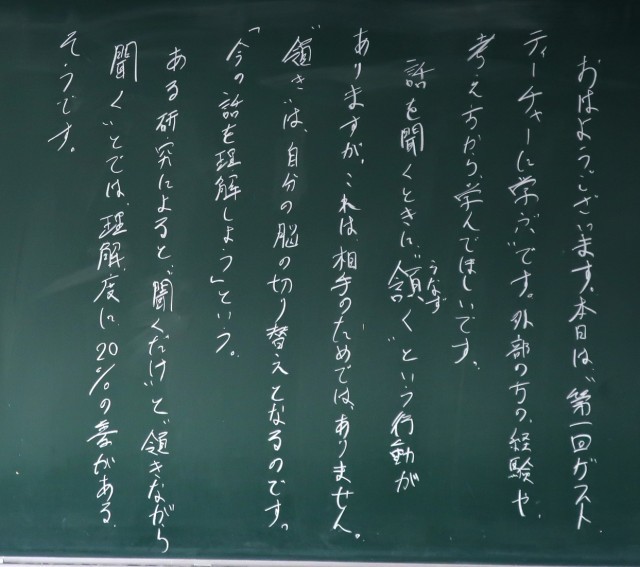 おはようございます。本日は、“第一回ゲスト
ティーチャーに学ぶ”です。外部の方の、経験や、
考え方から、学んでほしいです。
話を聞くときに、“頷く”という行動が
うなず
ありますが、これは、相手のためでは、ありません。
“頷き”は、自分の脳の切り替えとなるのです。
「今の話を理解しよう」という。
ある研究によると、“聞くだけ”と、“頷きながら
聞く”とでは、理解度に、20%の差がある
そうです。